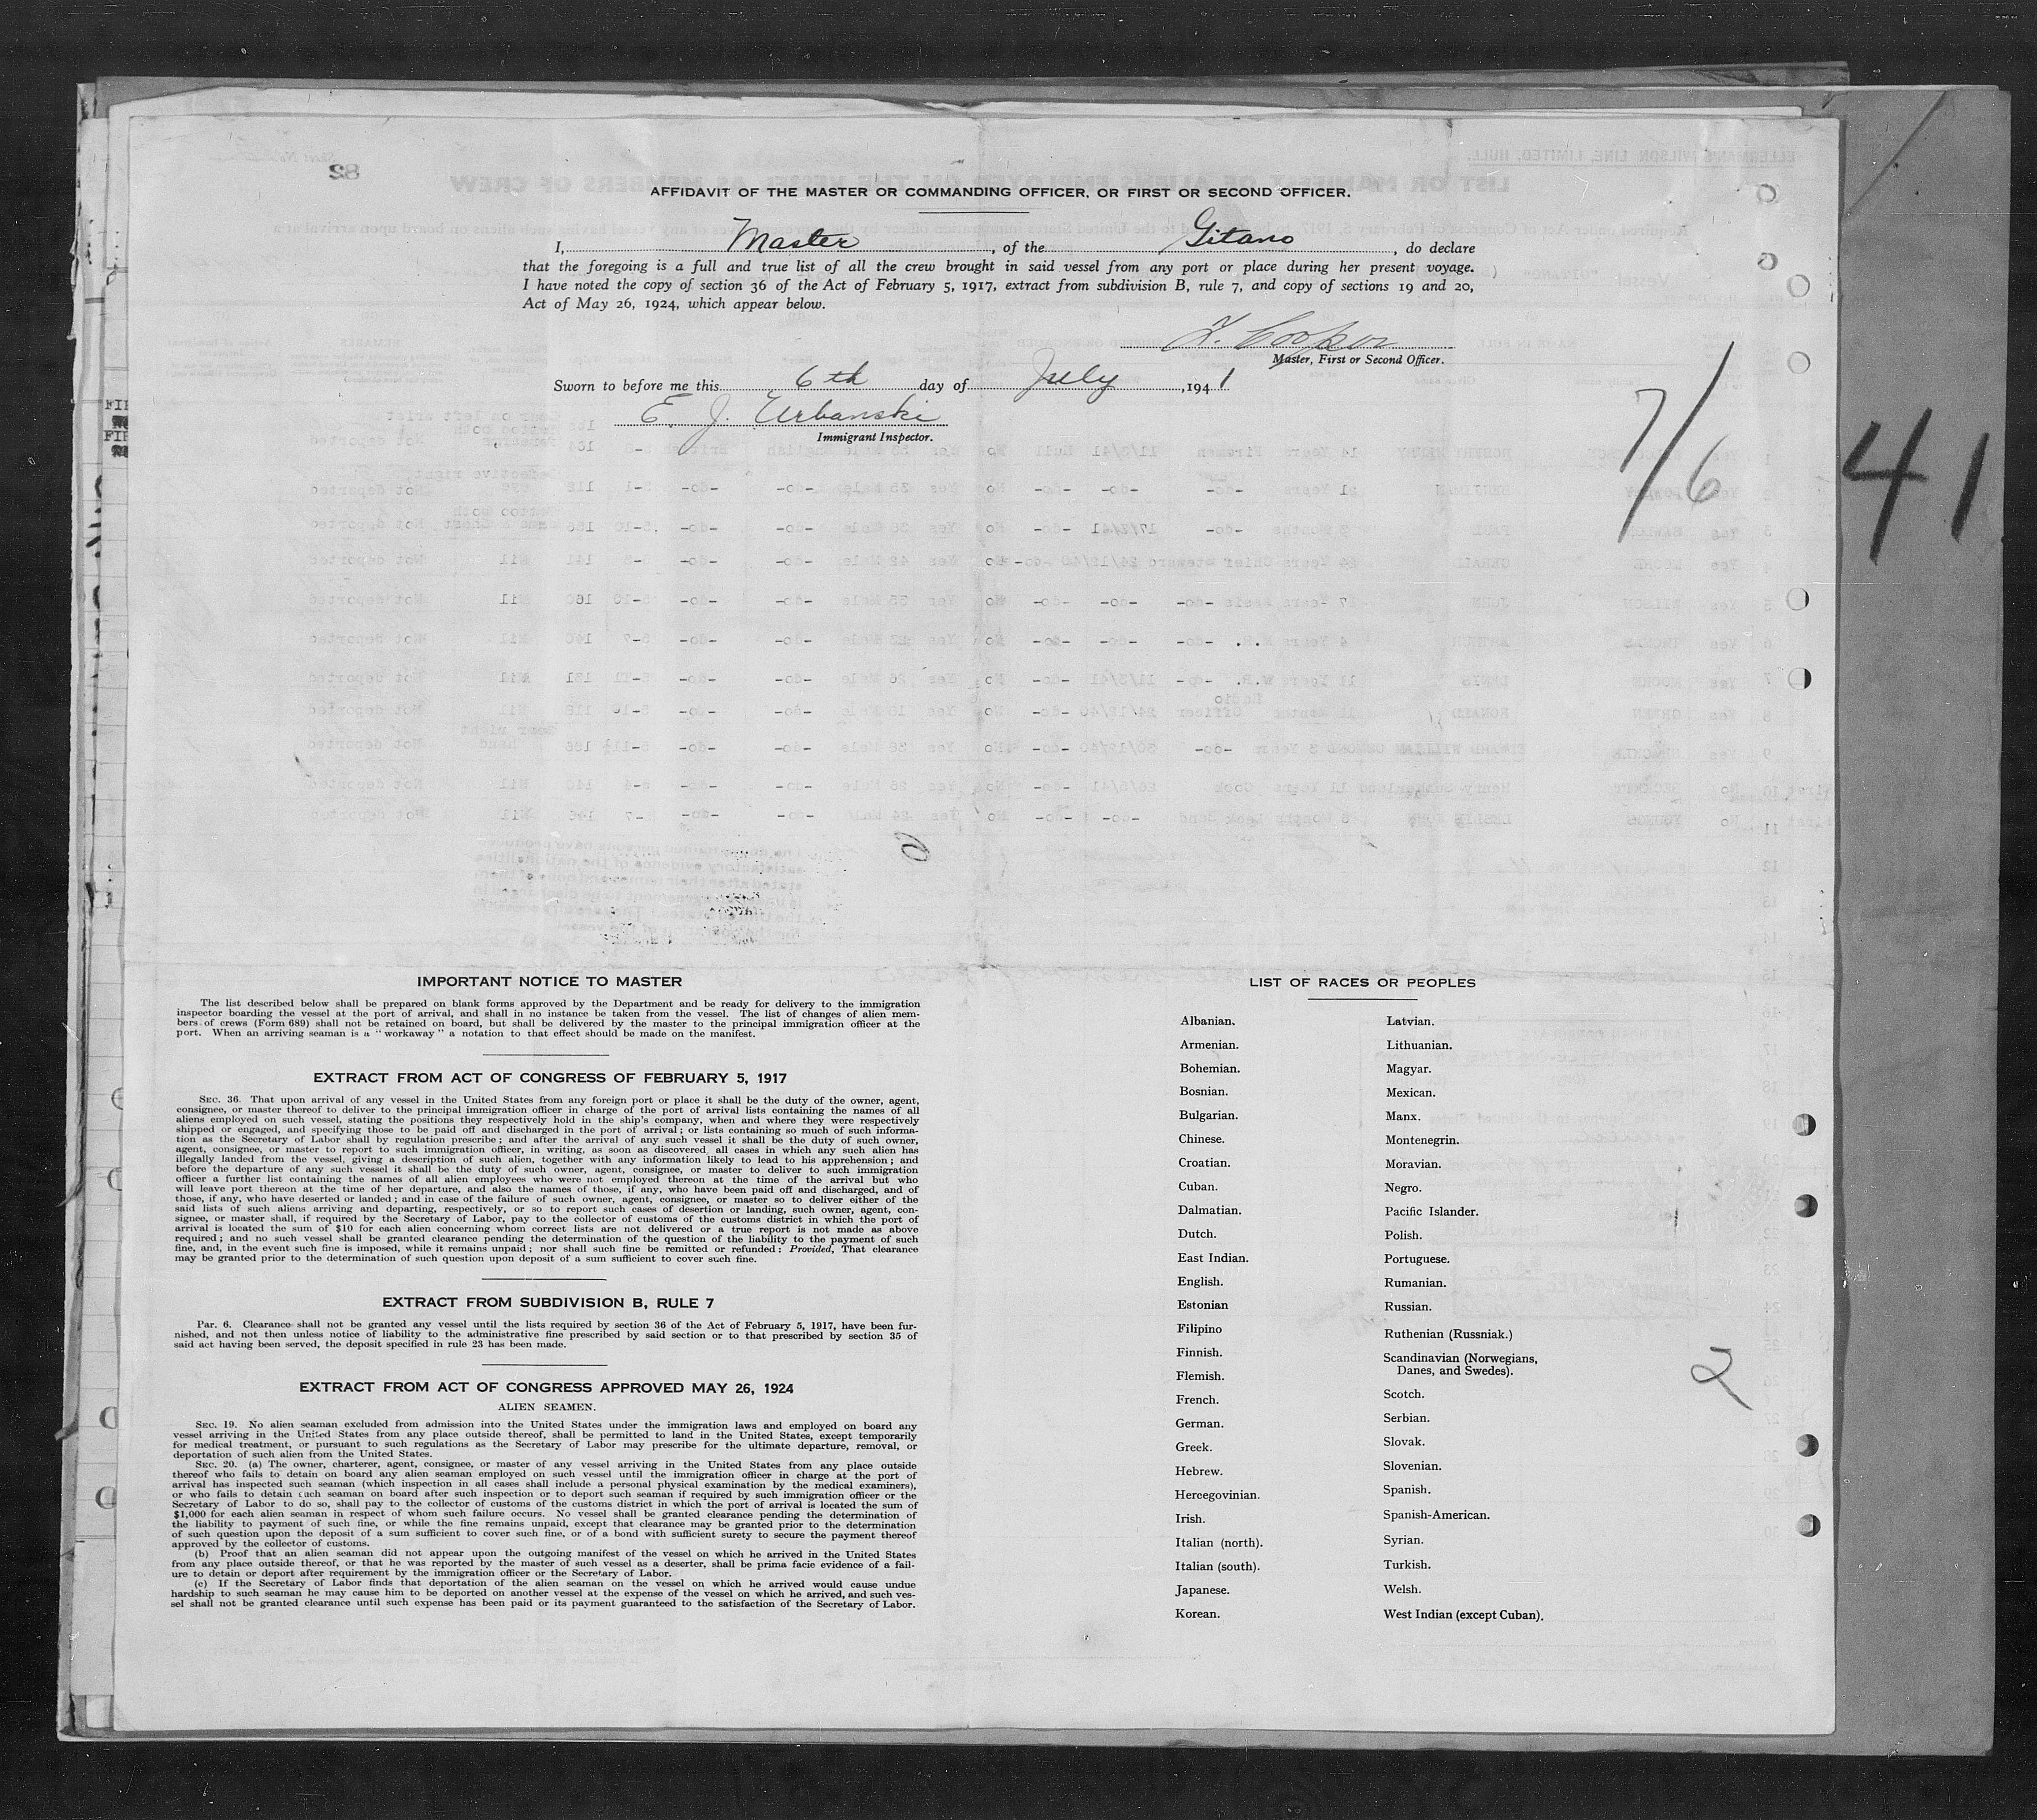 AFFIDAVIT OF THE MASTER OR COMMANDING OFFICER, OR FIRST OR SECOND OFFICER.
I, Master, of the Gitano, do declare
that the foregoing is a full and true list of all the crew brought in said vessel from any port or place during her present voyage.
I have noted the copy of section 36 of the Act of February 5, 1917, extract from subdivision B, rule 7, and copy of sections 19 and 20,
Act of May 26, 1924, which appear below.
Master, First or Second Officer.
Sworn to before me this 6th day of July, 1941
E. J. Urbanski
Immigrant Inspector.
7/6
41
IMPORTANT NOTICE TO MASTER
The list described below shall be prepared on blank forms approved by the Department and be ready for delivery to the immigration
inspector boarding the vessel at the port of arrival, and shall in no instance be taken from the vessel. The list of changes of alien mem-
bers of crews (Form 689) shall not be retained on board, but shall be delivered by the master to the principal immigration officer at the
port. When an arriving seaman is a "workaway" a notation to that effect should be made on the manifest.
EXTRACT FROM ACT OF CONGRESS OF FEBRUARY 5, 1917
SEC. 36. That upon arrival of any vessel in the United States from any foreign port or place it shall be the duty of the owner, agent,
consignee, or master thereof to deliver to the principal immigration officer in charge of the port of arrival lists containing the names of all
aliens employed on such vessel, stating the positions they respectively hold in the ship's company, when and where they were respectively
shipped or engaged, and specifying those to be paid off and discharged in the port of arrival; or lists containing so much of such informa-
tion as the Secretary of Labor shall by regulation prescribe; and after the arrival of any such vessel it shall be the duty of such owner,
agent, consignee, or master to report to such immigration officer, in writing, as soon as discovered, all cases in which any such alien has
illegally landed from the vessel, giving a description of such alien, together with any information likely to lead to his apprehension; and
before the departure of any such vessel it shall be the duty of such owner, agent, consignee, or master to deliver to such immigration
officer a further list containing the names of all alien employees who were not employed thereon at the time of the arrival but who
will leave port thereon at the time of her departure, and also the names of those, if any, who have been paid off and discharged, and of
those, if any, who have deserted or landed; and in case of the failure of such owner, agent, consignee, or master so to deliver either of the
said lists of such aliens arriving and departing, respectively, or so to report such cases of desertion or landing, such owner, agent, con-
signee, or master shall, if required by the Secretary of Labor, pay to the collector of customs of the customs district in which the port of
arrival is located the sum of $10 for each alien concerning whom correct lists are not delivered or a true report is not made as above
required; and no such vessel shall be granted clearance pending the determination of the question of the liability to the payment of such
fine, and, in the event such fine is imposed, while it remains unpaid; nor shall such fine be remitted or refunded: Provided, That clearance
may be granted prior to the determination of such question upon deposit of a sum sufficient to cover such fine.
EXTRACT FROM SUBDIVISION B, RULE 7
Par. 6. Clearance shall not be granted any vessel until the lists required by section 36 of the Act of February 5, 1917, have been fur-
nished, and not then unless notice of liability to the administrative fine prescribed by said section or to that prescribed by section 35 of
said act having been served, the deposit specified in rule 23 has been made.
EXTRACT FROM ACT OF CONGRESS APPROVED MAY 26, 1924
ALIEN SEAMEN.
SEC. 19. No alien seaman excluded from admission into the United States under the immigration laws and employed on board any
vessel arriving in the United States from any place outside thereof, shall be permitted to land in the United States, except temporarily
for medical treatment, or pursuant to such regulations as the Secretary of Labor may prescribe for the ultimate departure, removal, or
deportation of such alien from the United States.
SEC. 20. (a) The owner, charterer, agent, consignee, or master of any vessel arriving in the United States from any place outside
thereof who fails to detain on board any alien seaman employed on such vessel until the immigration officer in charge at the port of
arrival has inspected such seaman (which inspection in all cases shall include a personal physical examination by the medical examiners),
or who fails to detain such seaman on board after such inspection or to deport such seaman if required by such immigration officer or the
Secretary of Labor to do so, shall pay to the collector of customs of the customs district in which the port of arrival is located the sum of
$1,000 for each alien seaman in respect of whom such failure occurs. No vessel shall be granted clearance pending the determination of
the liability to payment of such fine, or while the fine remains unpaid, except that clearance may be granted prior to the determination
of such question upon the deposit of a sum sufficient to cover such fine, or of a bond with sufficient surety to secure the payment thereof
approved by the collector of customs.
(b) Proof that an alien seaman did not appear upon the outgoing manifest of the vessel on which he arrived in the United States
from any place outside thereof, or that he was reported by the master of such vessel as a deserter, shall be prima facie evidence of a fail-
ure to detain or deport after requirement by the immigration officer or the Secretary of Labor.
(c) If the Secretary of Labor finds that deportation of the alien seaman on the vessel on which he arrived would cause undue
hardship to such seaman he may cause him to be deported on another vessel at the expense of the vessel on which he arrived, and such ves-
sel shall not be granted clearance until such expense has been paid or its payment guaranteed to the satisfaction of the Secretary of Labor.
LIST OF RACES OR PEOPLES
Albanian.
Armenian.
Bohemian.
Bosnian.
Bulgarian.
Chinese.
Croatian.
Cuban.
Dalmatian.
Dutch.
East Indian.
English.
Estonian
Filipino
Finnish.
Flemish.
French.
German.
Greek.
Hebrew.
Hercegovinian.
Irish.
Italian (north).
Italian (south).
Japanese.
Korean.
Latvian.
Lithuanian.
Magyar.
Mexican.
Manx.
Montenegrin.
Moravian.
Negro.
Pacific Islander.
Polish.
Portuguese.
Rumanian.
Russian.
Ruthenian (Russniak.)
Scandinavian (Norwegians,
Danes, and Swedes).
Scotch.
Serbian.
Slovak.
Slovenian.
Spanish.
Spanish-American.
Syrian.
Turkish.
Welsh.
West Indian (except Cuban).
2